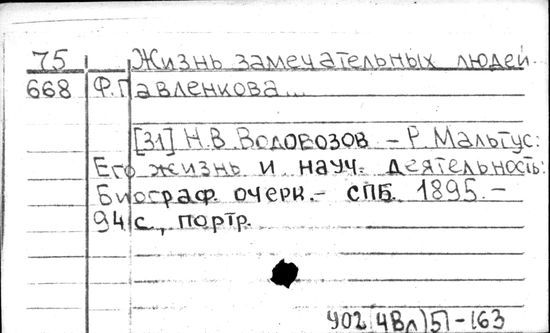 75 Жизнь замечательных людей.
668 Ф.Павленкова...
[31] Н.В. Водовозов – Р. Мальтус:
Его жизнь и науч. деятельность:
Биограф. очерк. – СПБ. 1895. –
94 с., портр.
У02(4Вл)5-163